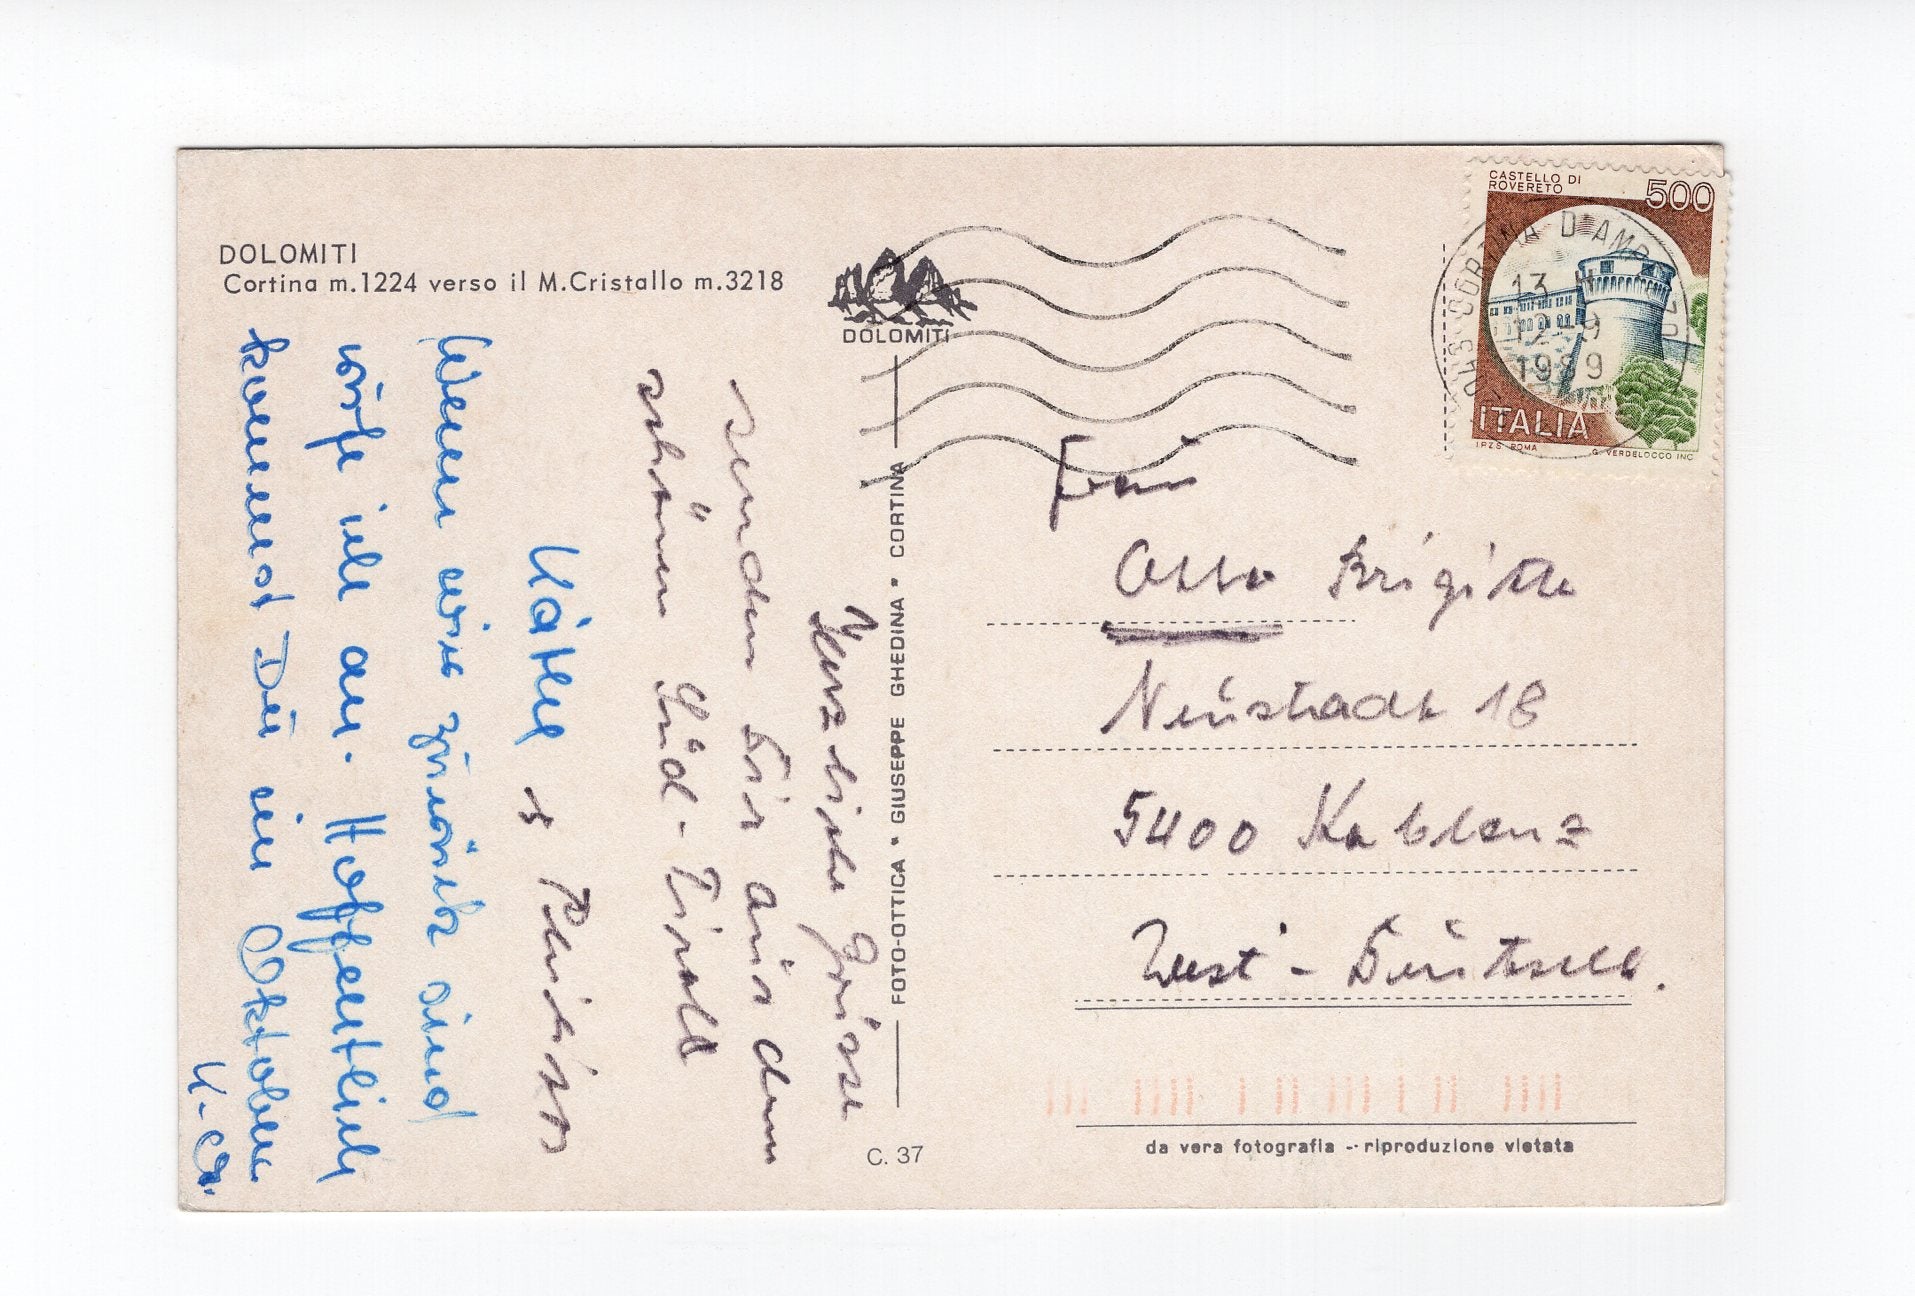 DOLOMITI
Cortina m.1224 verso il M.Cristallo m.3218
DOLOMITI
FOTO-OTTICA • GIUSEPPE GHEDINA • CORTINA
C. 37
Herzliche Grüsse
senden Dir aus dem
schönen Süd-Tiroll
Käthe &
Wenn wir zurück sind
rufe ich an. Hoffentlich
kommst Du im Oktober
CASTELLO DI
ROVERETO
500
ITALIA
I.P.Z.S. ROMA
G. VERDELOCCO INC
CORTINA D'AMPEZZO
13
12-9
1989
Frau
Otto Brigitte
Neustadt 18
5400 Koblenz
West-Deutschl.
da vera fotografia - riproduzione vietata